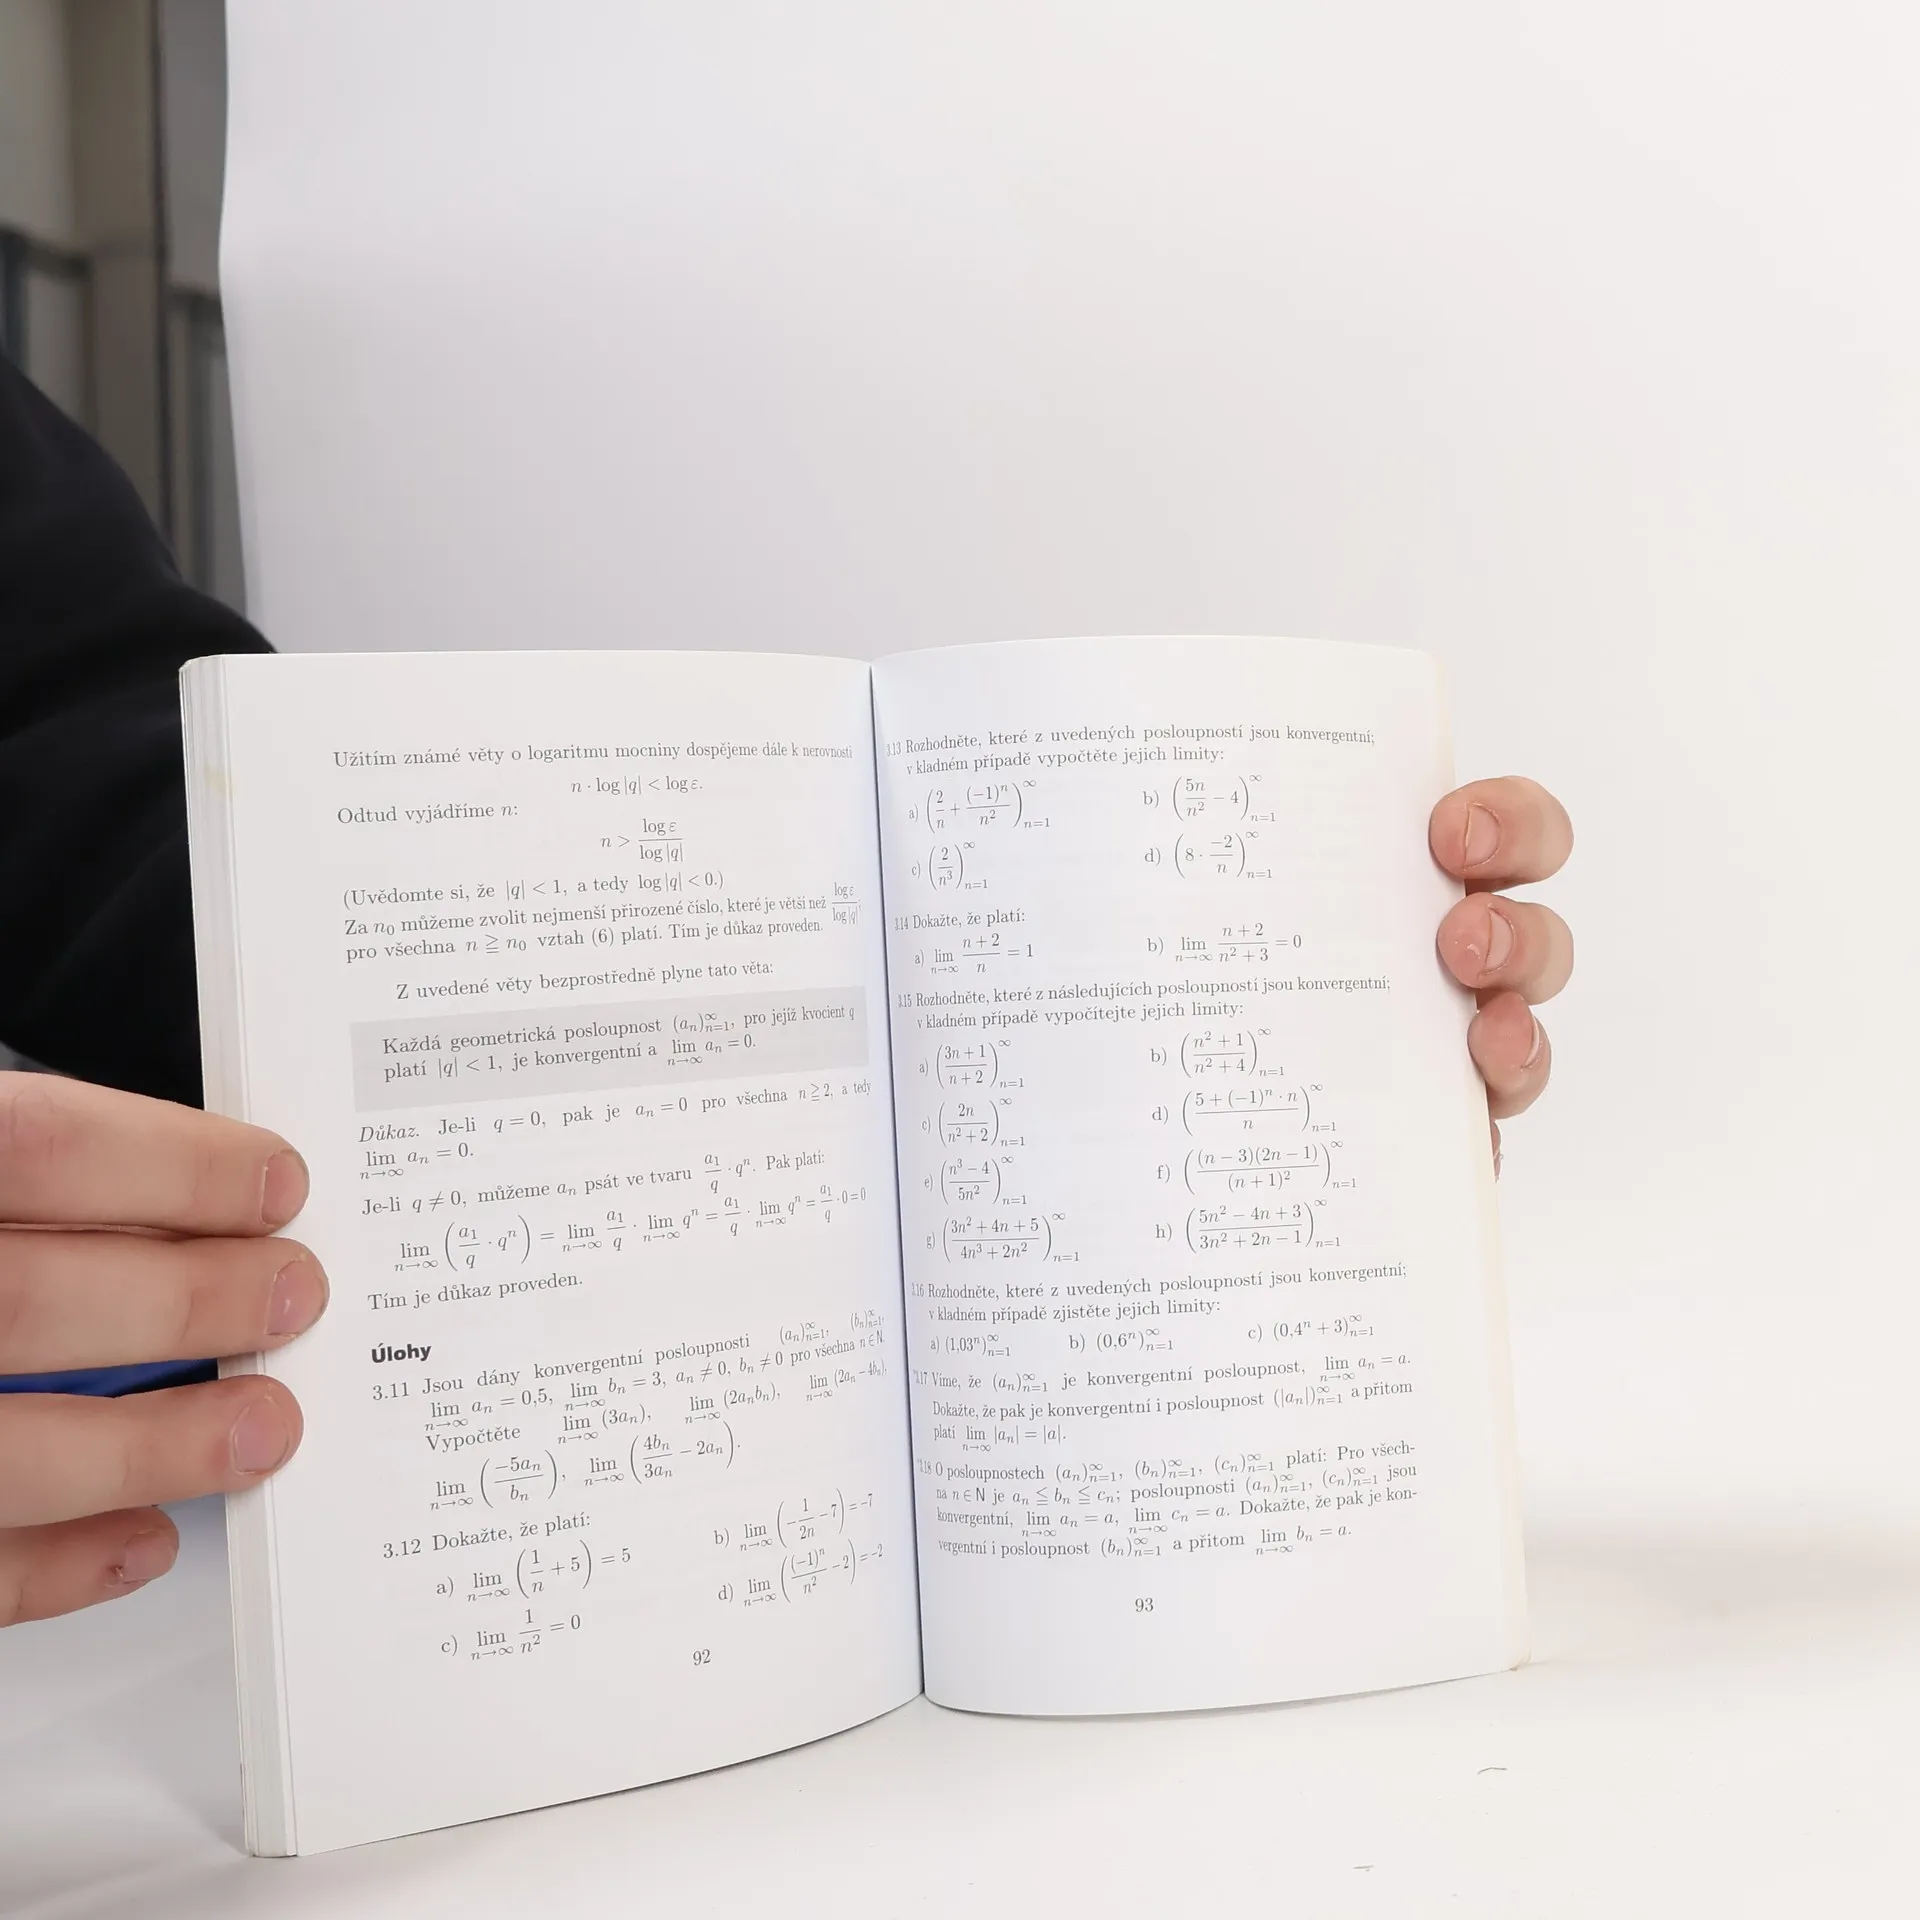 Užitím známé věty o logaritmu mocniny dospějeme dále k nerovnosti
n · log |q| < log ε.
Odtud vyjádříme n:
n > log ε / log |q|
(Uvědomte si, že |q| < 1, a tedy log |q| < 0.)
Za n₀ můžeme zvolit nejmenší přirozené číslo, které je větší než log ε / log |q|;
pro všechna n ≧ n₀ vztah (6) platí. Tím je důkaz proveden.
Z uvedené věty bezprostředně plyne tato věta:
Každá geometrická posloupnost (aₙ)∞ₙ₌₁, pro jejíž kvocient q
platí |q| < 1, je konvergentní a lim n→∞ aₙ = 0.
Důkaz. Je-li q = 0, pak je aₙ = 0 pro všechna n ≧ 2, a tedy
lim n→∞ aₙ = 0.
Je-li q ≠ 0, můžeme aₙ psát ve tvaru a₁/q · qⁿ. Pak platí:
lim n→∞ (a₁/q · qⁿ) = lim n→∞ a₁/q · lim n→∞ qⁿ = a₁/q · lim n→∞ qⁿ = a₁/q · 0 = 0
Tím je důkaz proveden.
Úlohy
3.11 Jsou dány konvergentní posloupnosti (aₙ)∞ₙ₌₁, (bₙ)∞ₙ₌₁,
lim n→∞ aₙ = 0,5, lim n→∞ bₙ = 3, aₙ ≠ 0, bₙ ≠ 0 pro všechna n ∈ N.
Vypočtěte lim n→∞ (3aₙ), lim n→∞ (2aₙbₙ), lim n→∞ (2aₙ − 4bₙ),
lim n→∞ (−5aₙ/bₙ), lim n→∞ (4bₙ/3aₙ − 2aₙ).
3.12 Dokažte, že platí:
a) lim n→∞ (1/n + 5) = 5 b) lim n→∞ (−1/2n − 7) = −7
c) lim n→∞ 1/n² = 0 d) lim n→∞ ((−1)ⁿ/n² − 2) = −2
92
3.13 Rozhodněte, které z uvedených posloupností jsou konvergentní;
v kladném případě vypočtěte jejich limity:
a) (2/n + (−1)ⁿ/n²)∞ₙ₌₁ b) (5n/n² − 4)∞ₙ₌₁
c) (2/n³)∞ₙ₌₁ d) (8 · −2/n)∞ₙ₌₁
3.14 Dokažte, že platí:
a) lim n→∞ (n + 2)/n = 1 b) lim n→∞ (n + 2)/(n² + 3) = 0
3.15 Rozhodněte, které z následujících posloupností jsou konvergentní;
v kladném případě vypočítejte jejich limity:
a) ((3n + 1)/(n + 2))∞ₙ₌₁ b) ((n² + 1)/(n² + 4))∞ₙ₌₁
c) (2n/(n² + 2))∞ₙ₌₁ d) ((5 + (−1)ⁿ · n)/n)∞ₙ₌₁
e) ((n³ − 4)/5n²)∞ₙ₌₁ f) ((n − 3)(2n − 1)/(n + 1)²)∞ₙ₌₁
g) ((3n² + 4n + 5)/(4n³ + 2n²))∞ₙ₌₁ h) ((5n² − 4n + 3)/(3n² + 2n − 1))∞ₙ₌₁
3.16 Rozhodněte, které z uvedených posloupností jsou konvergentní;
v kladném případě zjistěte jejich limity:
a) (1,03ⁿ)∞ₙ₌₁ b) (0,6ⁿ)∞ₙ₌₁ c) (0,4ⁿ + 3)∞ₙ₌₁
Víme, že (aₙ)∞ₙ₌₁ je konvergentní posloupnost, lim n→∞ aₙ = a.
Dokažte, že pak je konvergentní i posloupnost (|aₙ|)∞ₙ₌₁ a přitom
platí lim n→∞ |aₙ| = |a|.
O posloupnostech (aₙ)∞ₙ₌₁, (bₙ)∞ₙ₌₁, (cₙ)∞ₙ₌₁ platí: Pro všech-
na n ∈ N je aₙ ≦ bₙ ≦ cₙ; posloupnosti (aₙ)∞ₙ₌₁, (cₙ)∞ₙ₌₁ jsou
konvergentní, lim n→∞ aₙ = a, lim n→∞ cₙ = a. Dokažte, že pak je kon-
vergentní i posloupnost (bₙ)∞ₙ₌₁ a přitom lim n→∞ bₙ = a.
93